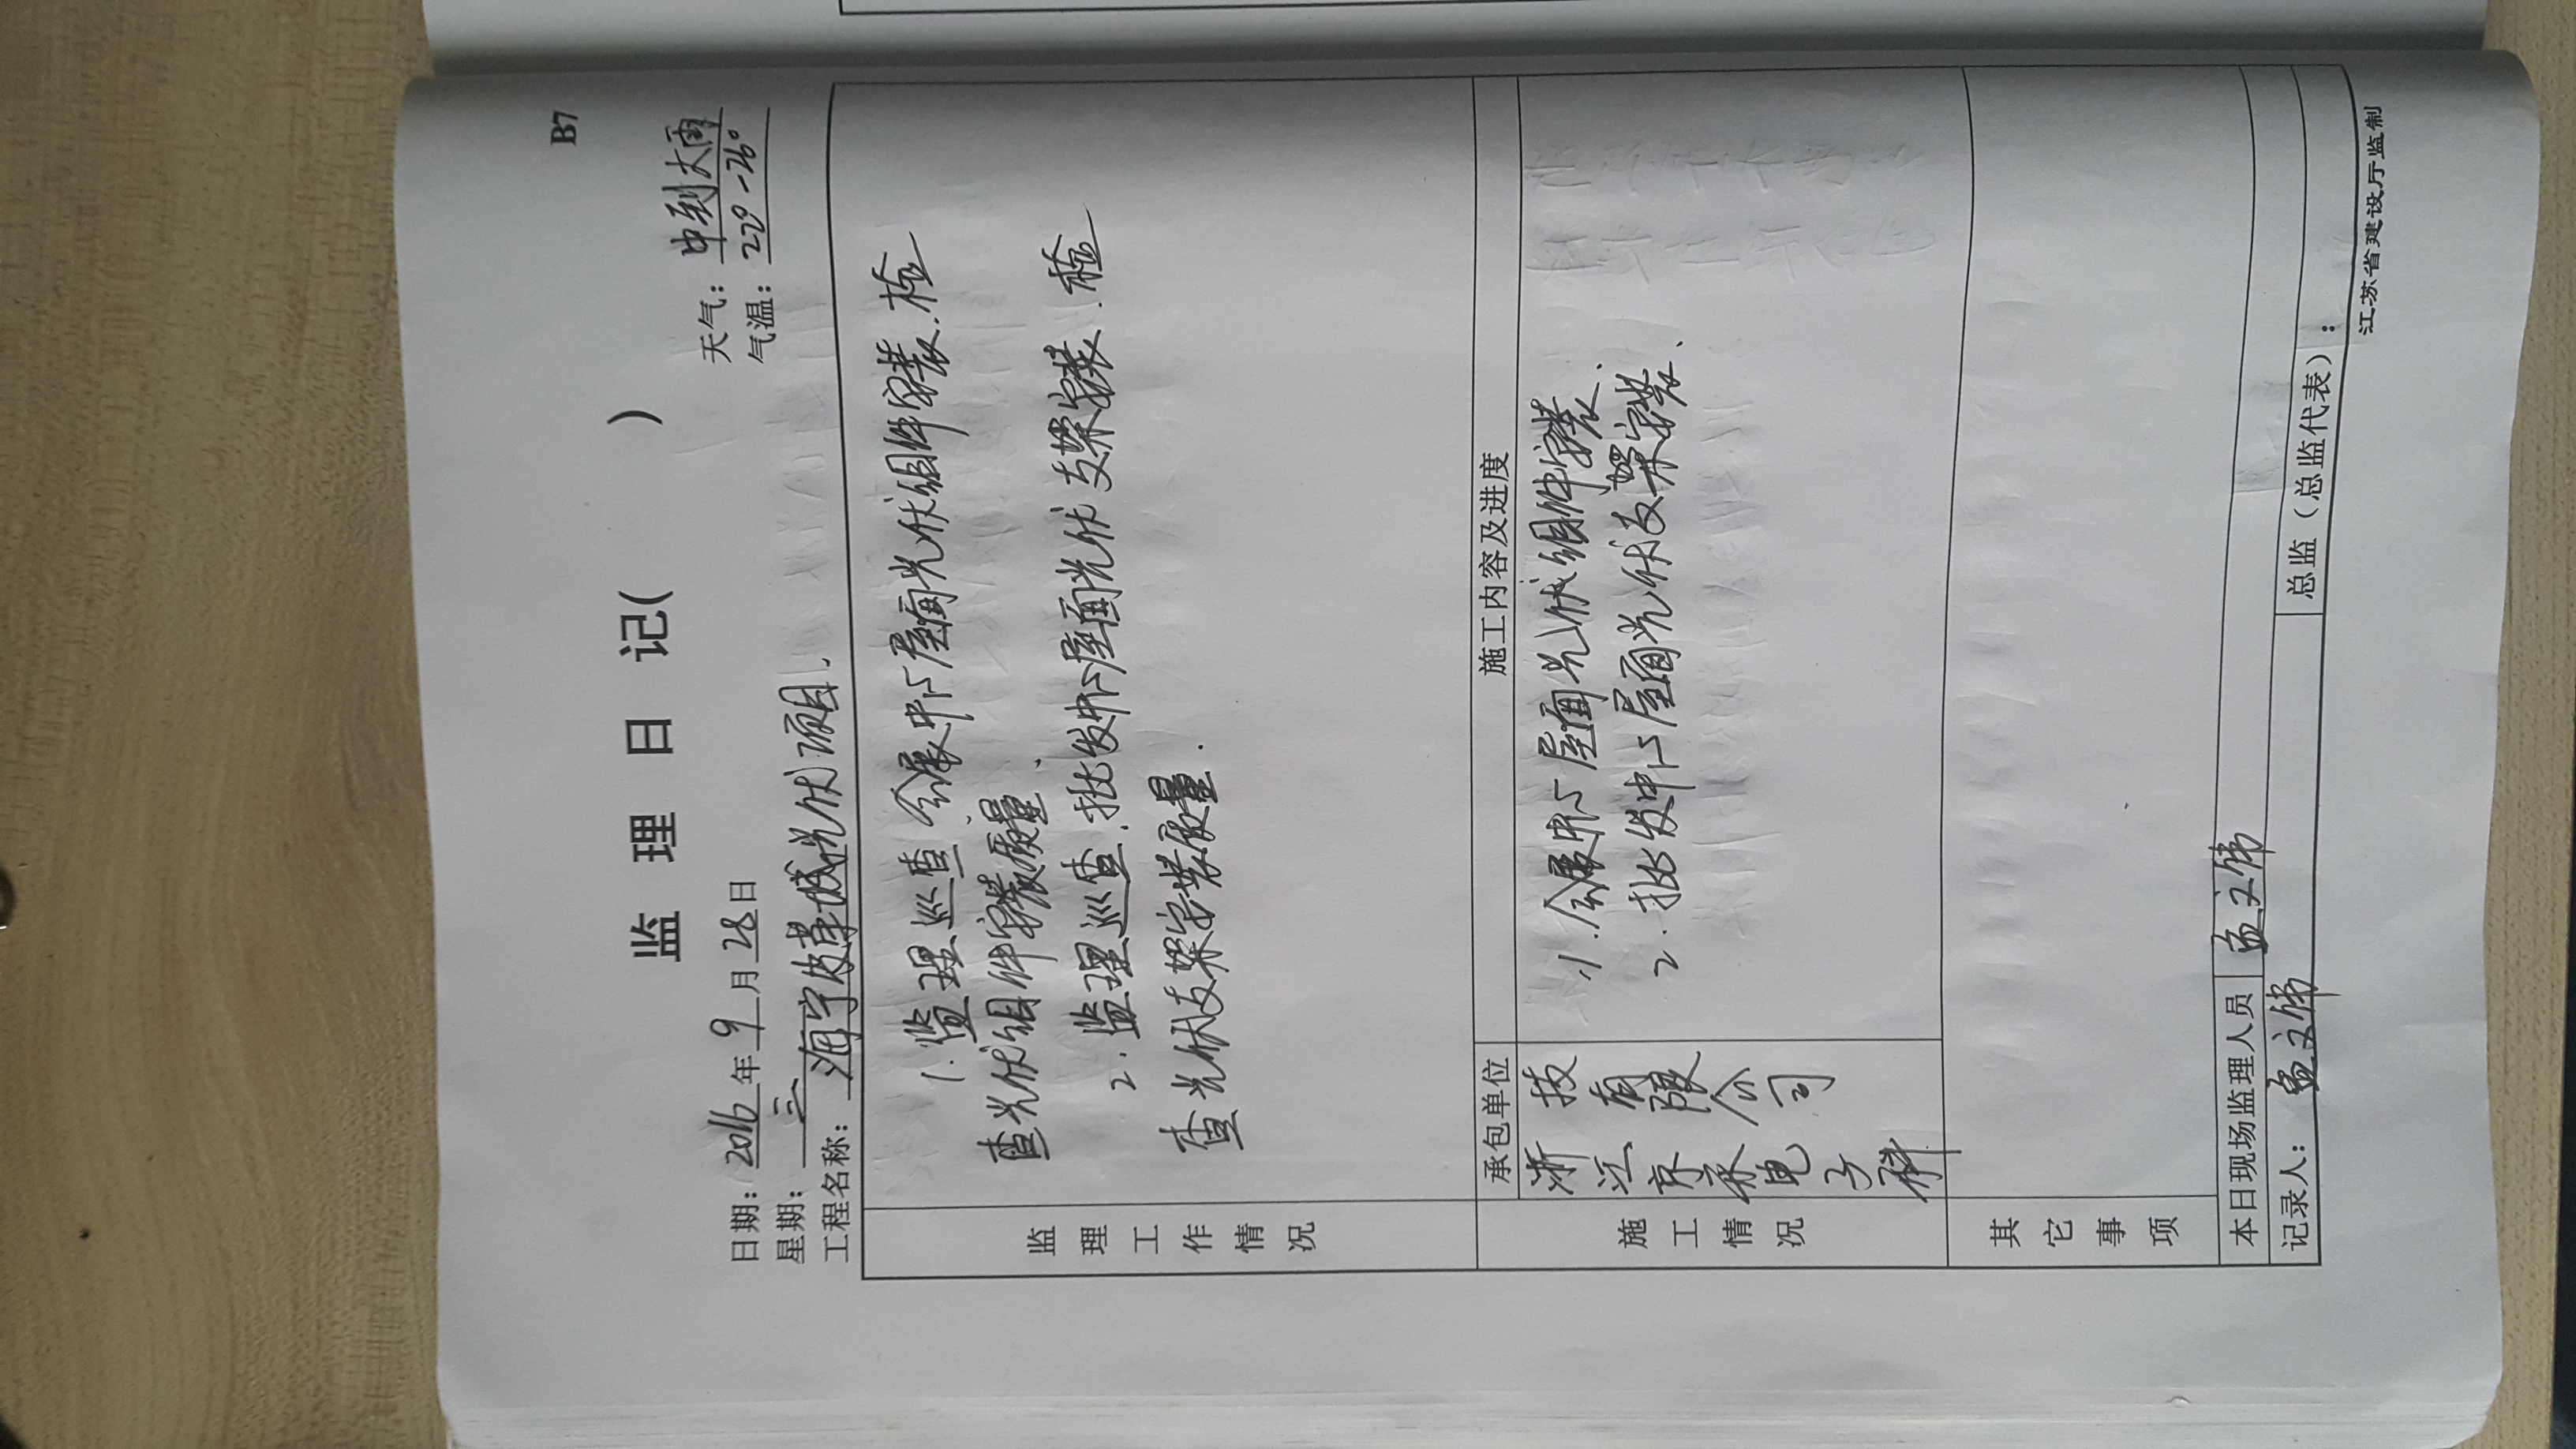 B7
监 理 日 记( )
日期：2016年9月28日 天气：中到大雨
星期：三 气温：22°-26°
工程名称：海宁皮革城光伏项目.
监理工作情况
1.监理巡查会展中心屋面光伏组件安装.检
查光伏组件安装质量.
2.监理巡查.批发中心屋面光伏支架安装.检
查光伏支架安装质量.
施工情况
承包单位 施工内容及进度
浙江京承电子科
技有限公司
1.会展中心屋面光伏组件安装.
2.批发中心屋面光伏支架安装.
其它事项
本日现场监理人员 孟文伟
记录人：孟文伟 总监（总监代表）：
江苏省建设厅监制